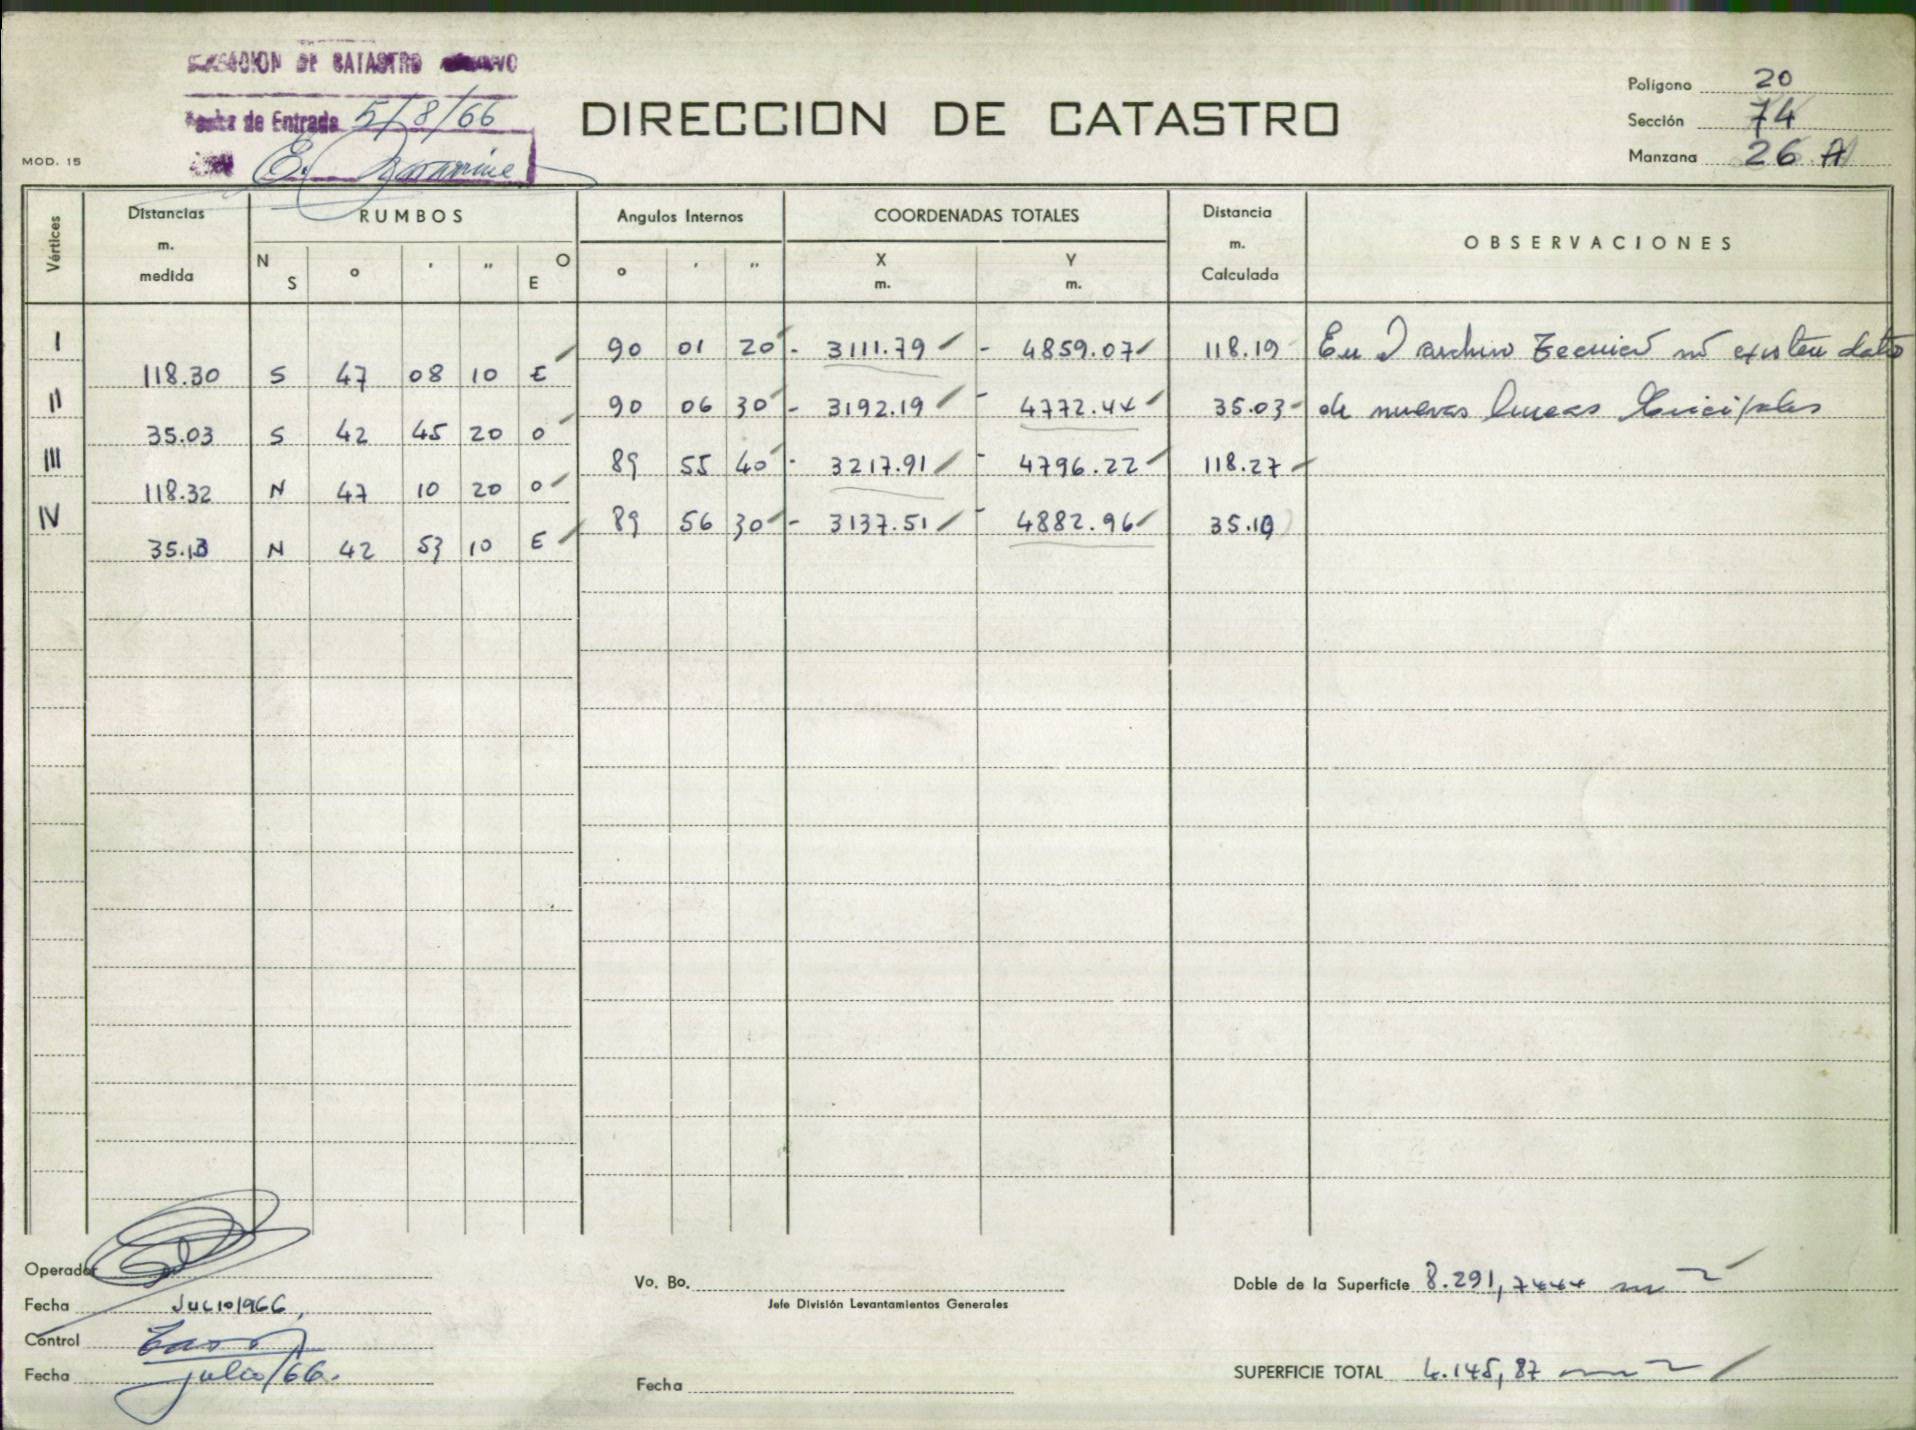 DE CATASTRO
de Entrada 5/8/66
E.
DIRECCION DE CATASTRO
Polígono 20
Sección 74
Manzana 26 A
MOD. 15
Vértices
Distancias m. medida
RUMBOS
N S ° ' " O E
Angulos Internos
° ' "
COORDENADAS TOTALES
X m. Y m.
Distancia m. Calculada
OBSERVACIONES
I 90 01 20 - 3111.79 - 4859.07 118.19 En archivo Tecnico no existen datos
118.30 S 47 08 10 E
II 90 06 30 - 3192.19 - 4772.44 35.03 de nuevas lineas
35.03 S 42 45 20 O
III 89 55 40 - 3217.91 - 4796.22 118.27
118.32 N 47 10 20 O
IV 89 56 30 - 3137.51 - 4882.96 35.10
35.13 N 42 53 10 E
Operador
Fecha JULIO/966.
Control
Fecha julio/66.
Vo. Bo.
Jefe División Levantamientos Generales
Fecha
Doble de la Superficie 8.291,7444 m2
SUPERFICIE TOTAL 4.145,87 m2